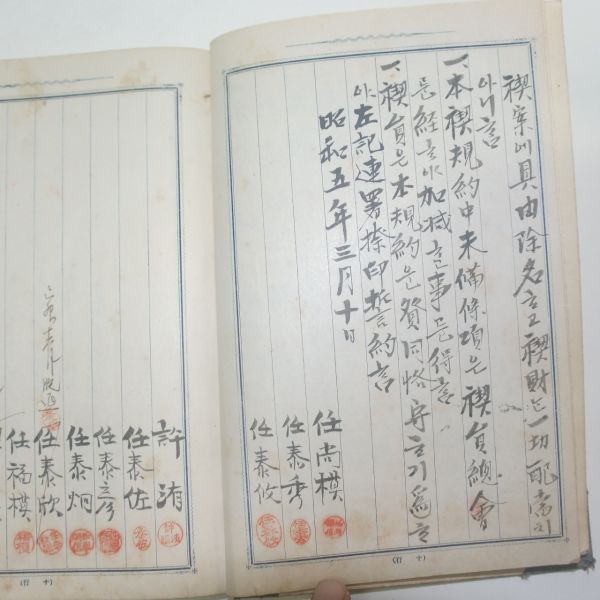 禊案에 具由除名하고 禊財는 一切配當치
아니함
一、本禊規約中未備條項은 禊員總會
를 經하야 加减할 事를 得함
一、禊員은 本規約을 贊同恪守하기 爲하
야 左記連署捺印誓約함
昭和五年三月十日
任尚模
任泰秀
任泰攸
許洧
任泰佐
任泰彦
任泰炯
任泰欣
任福模
(行十)
(行十)